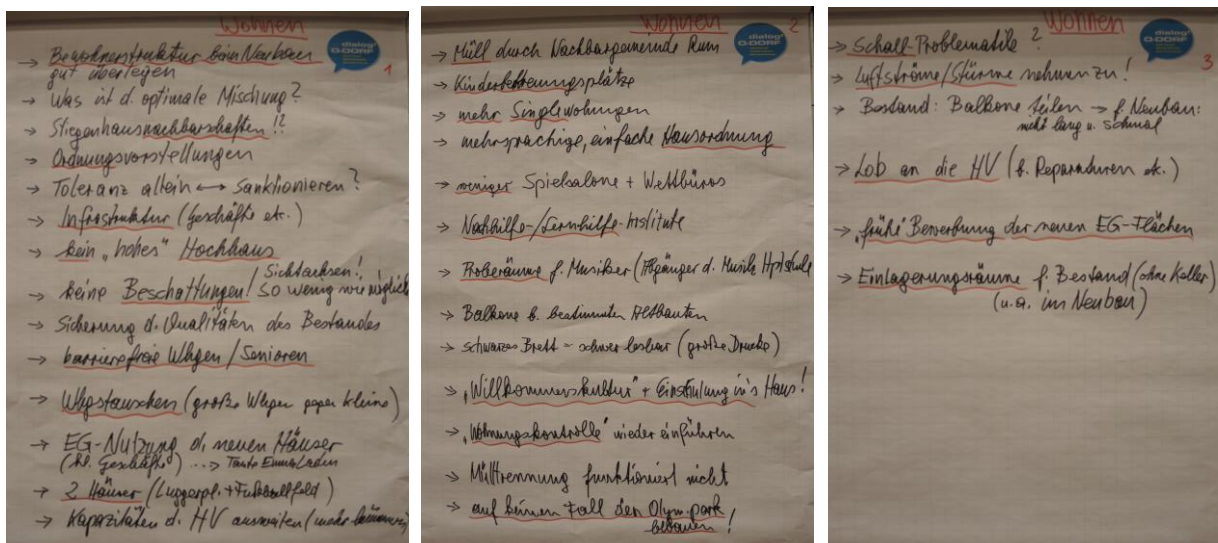 Wohnen
dialog
O-DORF
1
→ Bewohnerstruktur beim Neubau
gut überlegen
→ Was ist d. optimale Mischung?
→ Stiegenhausnachbarschaften!?
→ Ordnungsvorstellungen
→ Toleranz allein ↔ Sanktionieren?
→ Infrastruktur (Geschäfte etc.)
→ kein "hohes" Hochhaus
→ keine Beschattungen! Sichtachsen!
so wenig wie möglich
→ Sicherung d. Qualitäten des Bestandes
→ barrierefreie Whgen / Senioren
→ Whgstauschen (große Whgen gegen kleine)
→ EG-Nutzung d. neuen Häuser
(kl. Geschäfte) ...→ Tante Emma Laden
→ 2 Häuser (Luggerpl. + Fußballfeld)
→ Kapazitäten d. HV ausweiten (mehr
Wohnen
2
dialog
O-DORF
→ Müll durch Nachbargemeinde Rum
→ Kinderbetreuungsplätze
→ mehr Singlewohnungen
→ mehrsprachige, einfache Hausordnung
→ weniger Spielsalone + Wettbüros
→ Nachhilfe-/Lernhilfe-Institute
→ Proberäume f. Musiker (Abgänger d. Musik Hptschule
→ Balkone b. bestimmten Altbauten
→ schwarzes Brett = schwer lesbar (große Drucke)
→ "Willkommenskultur" + Einschulung in's Haus!
→ "Wohnungskontrolle" wieder einführen
→ Mülltrennung funktioniert nicht
→ auf keinen Fall den Olym.park
bebauen!
Wohnen
3
dialog
O-DORF
→ Schall-Problematik ?
→ Luftströme/Stürme nehmen zu!
→ Bestand: Balkone teilen → f. Neubau:
nicht lang u. schmal
→ Lob an die HV (b. Reparaturen etc.)
→ "frühe" Bewerbung der neuen EG-Flächen
→ Einlagerungsräume f. Bestand (ohne Keller)
(u.a. im Neubau)